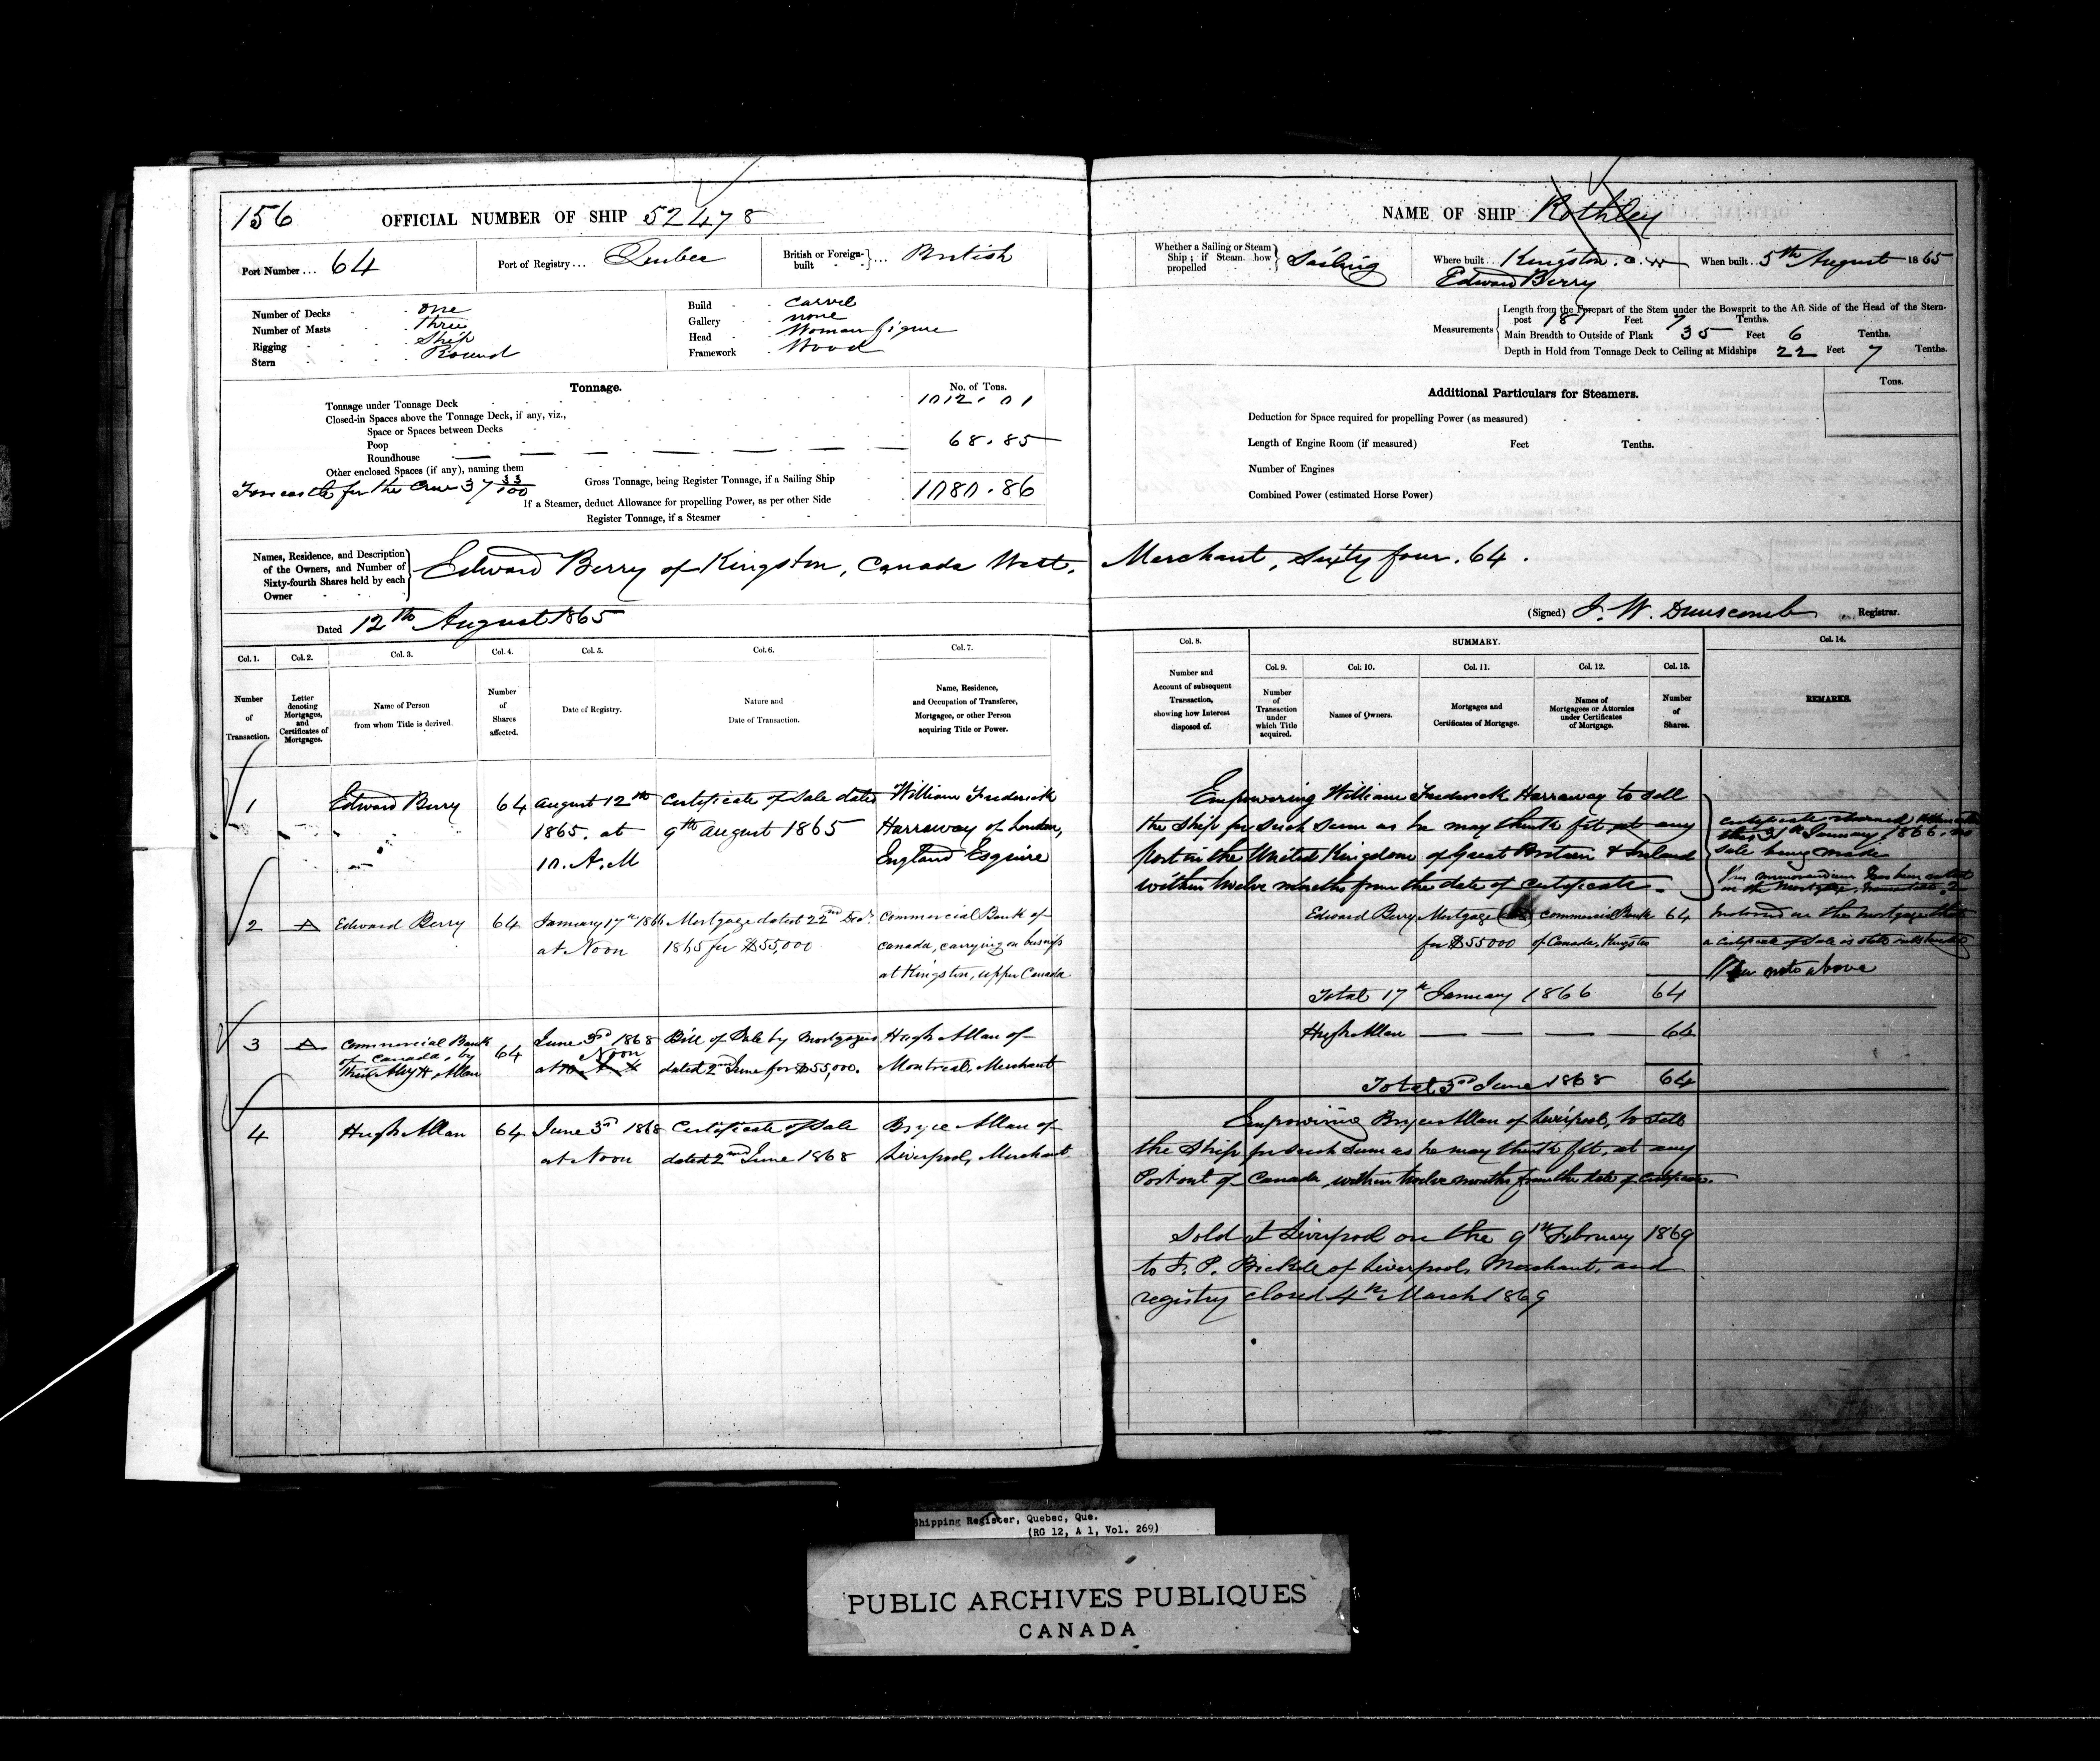 156 OFFICIAL NUMBER OF SHIP 52478
Port Number ... 64 Port of Registry ... Quebec British or Foreign-built } ... British
Number of Decks one
Number of Masts Three
Rigging Ship
Stern Round
Build Carvel
Gallery none
Head Woman figure
Framework Wood
Tonnage. No. of Tons.
Tonnage under Tonnage Deck 1012.01
Closed-in Spaces above the Tonnage Deck, if any, viz.,
Space or Spaces between Decks
Poop 68.85
Roundhouse
Other enclosed Spaces (if any), naming them
Forecastle for the Crew 37 33/100 Gross Tonnage, being Register Tonnage, if a Sailing Ship 1080.86
If a Steamer, deduct Allowance for propelling Power, as per other Side
Register Tonnage, if a Steamer
Names, Residence, and Description of the Owners, and Number of Sixty-fourth Shares held by each Owner } Edward Berry of Kingston, Canada West.
Dated 12th August 1865
Col. 1. Col. 2. Col. 3. Col. 4. Col. 5. Col. 6. Col. 7.
Number of Transaction. Letter denoting Mortgages, and Certificates of Mortgages. Name of Person from whom Title is derived. Number of Shares affected. Date of Registry. Nature and Date of Transaction. Name, Residence, and Occupation of Transferee, Mortgagee, or other Person acquiring Title or Power.
1 Edward Berry 64 August 12th Certificate of Sale dated William Frederick
1865. at 9th August 1865 Harraway of London,
10. A.M England Esquire
2 A Edward Berry 64 January 17th 1866 Mortgage dated 22nd Decr. Commercial Bank of
at Noon 1865 for $55,000 Canada, carrying on business
at Kingston, Upper Canada
3 A Commercial Bank of Canada, by their Atty H. Allan 64 June 3rd 1868 Bill of Sale by Mortgagees Hugh Allan of
at Noon dated 2nd June for $55,000. Montreal, Merchant
4 Hugh Allan 64 June 3rd 1868 Certificate of Sale Bryce Allan of
at Noon dated 2nd June 1868 Liverpool, Merchant
NAME OF SHIP Rothley
Whether a Sailing or Steam Ship; if Steam how propelled } Sailing Where built ... Kingston. C.W When built ... 5th August 1865
Edward Berry
Measurements { Length from the Forepart of the Stem under the Bowsprit to the Aft Side of the Head of the Stern-
post 181 Feet 7 Tenths.
Main Breadth to Outside of Plank 35 Feet 6 Tenths.
Depth in Hold from Tonnage Deck to Ceiling at Midships 22 Feet 7 Tenths.
Additional Particulars for Steamers. Tons.
Deduction for Space required for propelling Power (as measured)
Length of Engine Room (if measured) Feet Tenths.
Number of Engines
Combined Power (estimated Horse Power)
Merchant, Sixty four. 64.
(Signed) J. W. Dunscomb Registrar.
Col. 8. SUMMARY. Col. 14.
Col. 9. Col. 10. Col. 11. Col. 12. Col. 13.
Number and Account of subsequent Transaction, showing how Interest disposed of. Number of Transaction under which Title acquired. Names of Owners. Mortgages and Certificates of Mortgage. Names of Mortgagees or Attornies under Certificates of Mortgage. Number of Shares. REMARKS.
Empowering William Frederick Harraway to sell
the ship for such sum as he may think fit at any
Port in the United Kingdom of Great Britain & Ireland
within twelve months from the date of certificate.
certificate returned
this 31st January 1866. no
sale being made
Edward Berry Mortgage Commercial Bank 64
for $55000 of Canada, Kingston
a certificate of Sale is still outstanding
note above
Total 17th January 1866 64
Hugh Allan 64
Total 3rd June 1868 64
Empowering Bryce Allan of Liverpool, to sell
the Ship for such sum as he may think fit, at any
Port out of Canada within twelve months from the date of Certificate.
Sold at Liverpool on the 9th February 1869
to of Liverpool, Merchant, and
registry closed 4th March 1869
Shipping Register, Quebec, Que.
(RG 12, A 1, Vol. 269)
PUBLIC ARCHIVES PUBLIQUES
CANADA